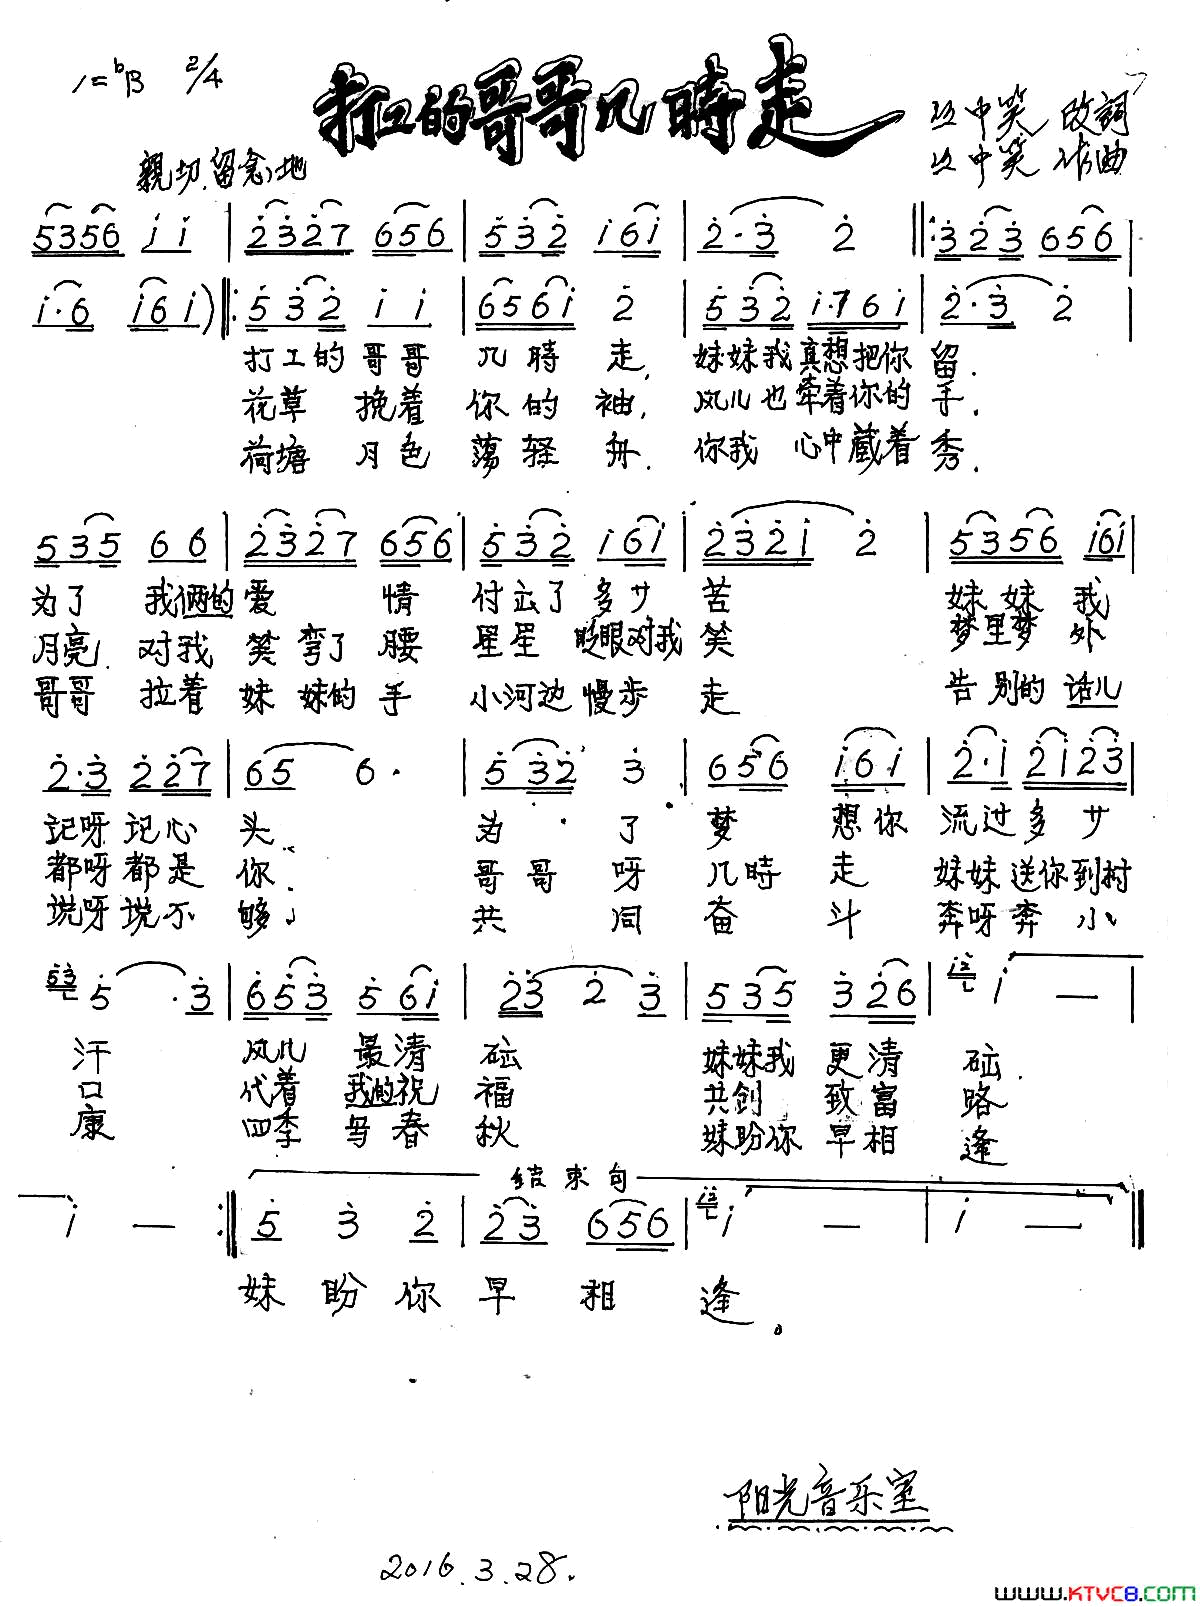 1=♭B 2/4
打工的哥哥几時走
中笑 改詞
中笑 作曲
親切.留念地
5356 i i | 2327 656 | 532 i6i | 2·3 2 ‖: 323 656 |
i·6 i6i) ‖: 532 i i | 656i 2 | 532 i·76i | 2·3 2 |
打工的哥哥 几時走, 妹妹我真想把你留.
花草 挽着 你的袖, 风儿也牵着你的手.
荷塘 月色 荡轻舟. 你我 心中藏着秀.
535 66 | 2327 656 | 532 i6i | 232i 2 | 5356 i6i
为了 我俩的爱 情 付出了多少苦 妹妹我
月亮.对我 笑弯了腰 星星 眨眼对我笑 梦里梦外
哥哥 拉着 妹妹的手 小河边慢步走 告别的话儿
2·3 227 | 65 6· | 532 3 | 656 i6·i | 2·i 2i23 |
记呀记心头. 为了 梦想你 流过多少
都呀都是你. 哥哥呀 几時走 妹妹送你到村
说呀说不够, 共同 奋斗 奔呀奔小
53 5 ·3 | 653 5 6i | 23 2 3 | 535 326 | i2 i — |
汗 风儿 最清础 妹妹我 更清础.
口 代着 我的祝福 共创 致富路
康 四季 与春秋 妹盼你 早相逢
i — :‖ 结束句
5 3 2 | 23 656 | i2 i — | i — ‖
妹盼你早相逢。
阳光音乐室
2016.3.28.
www.KTVC8.com